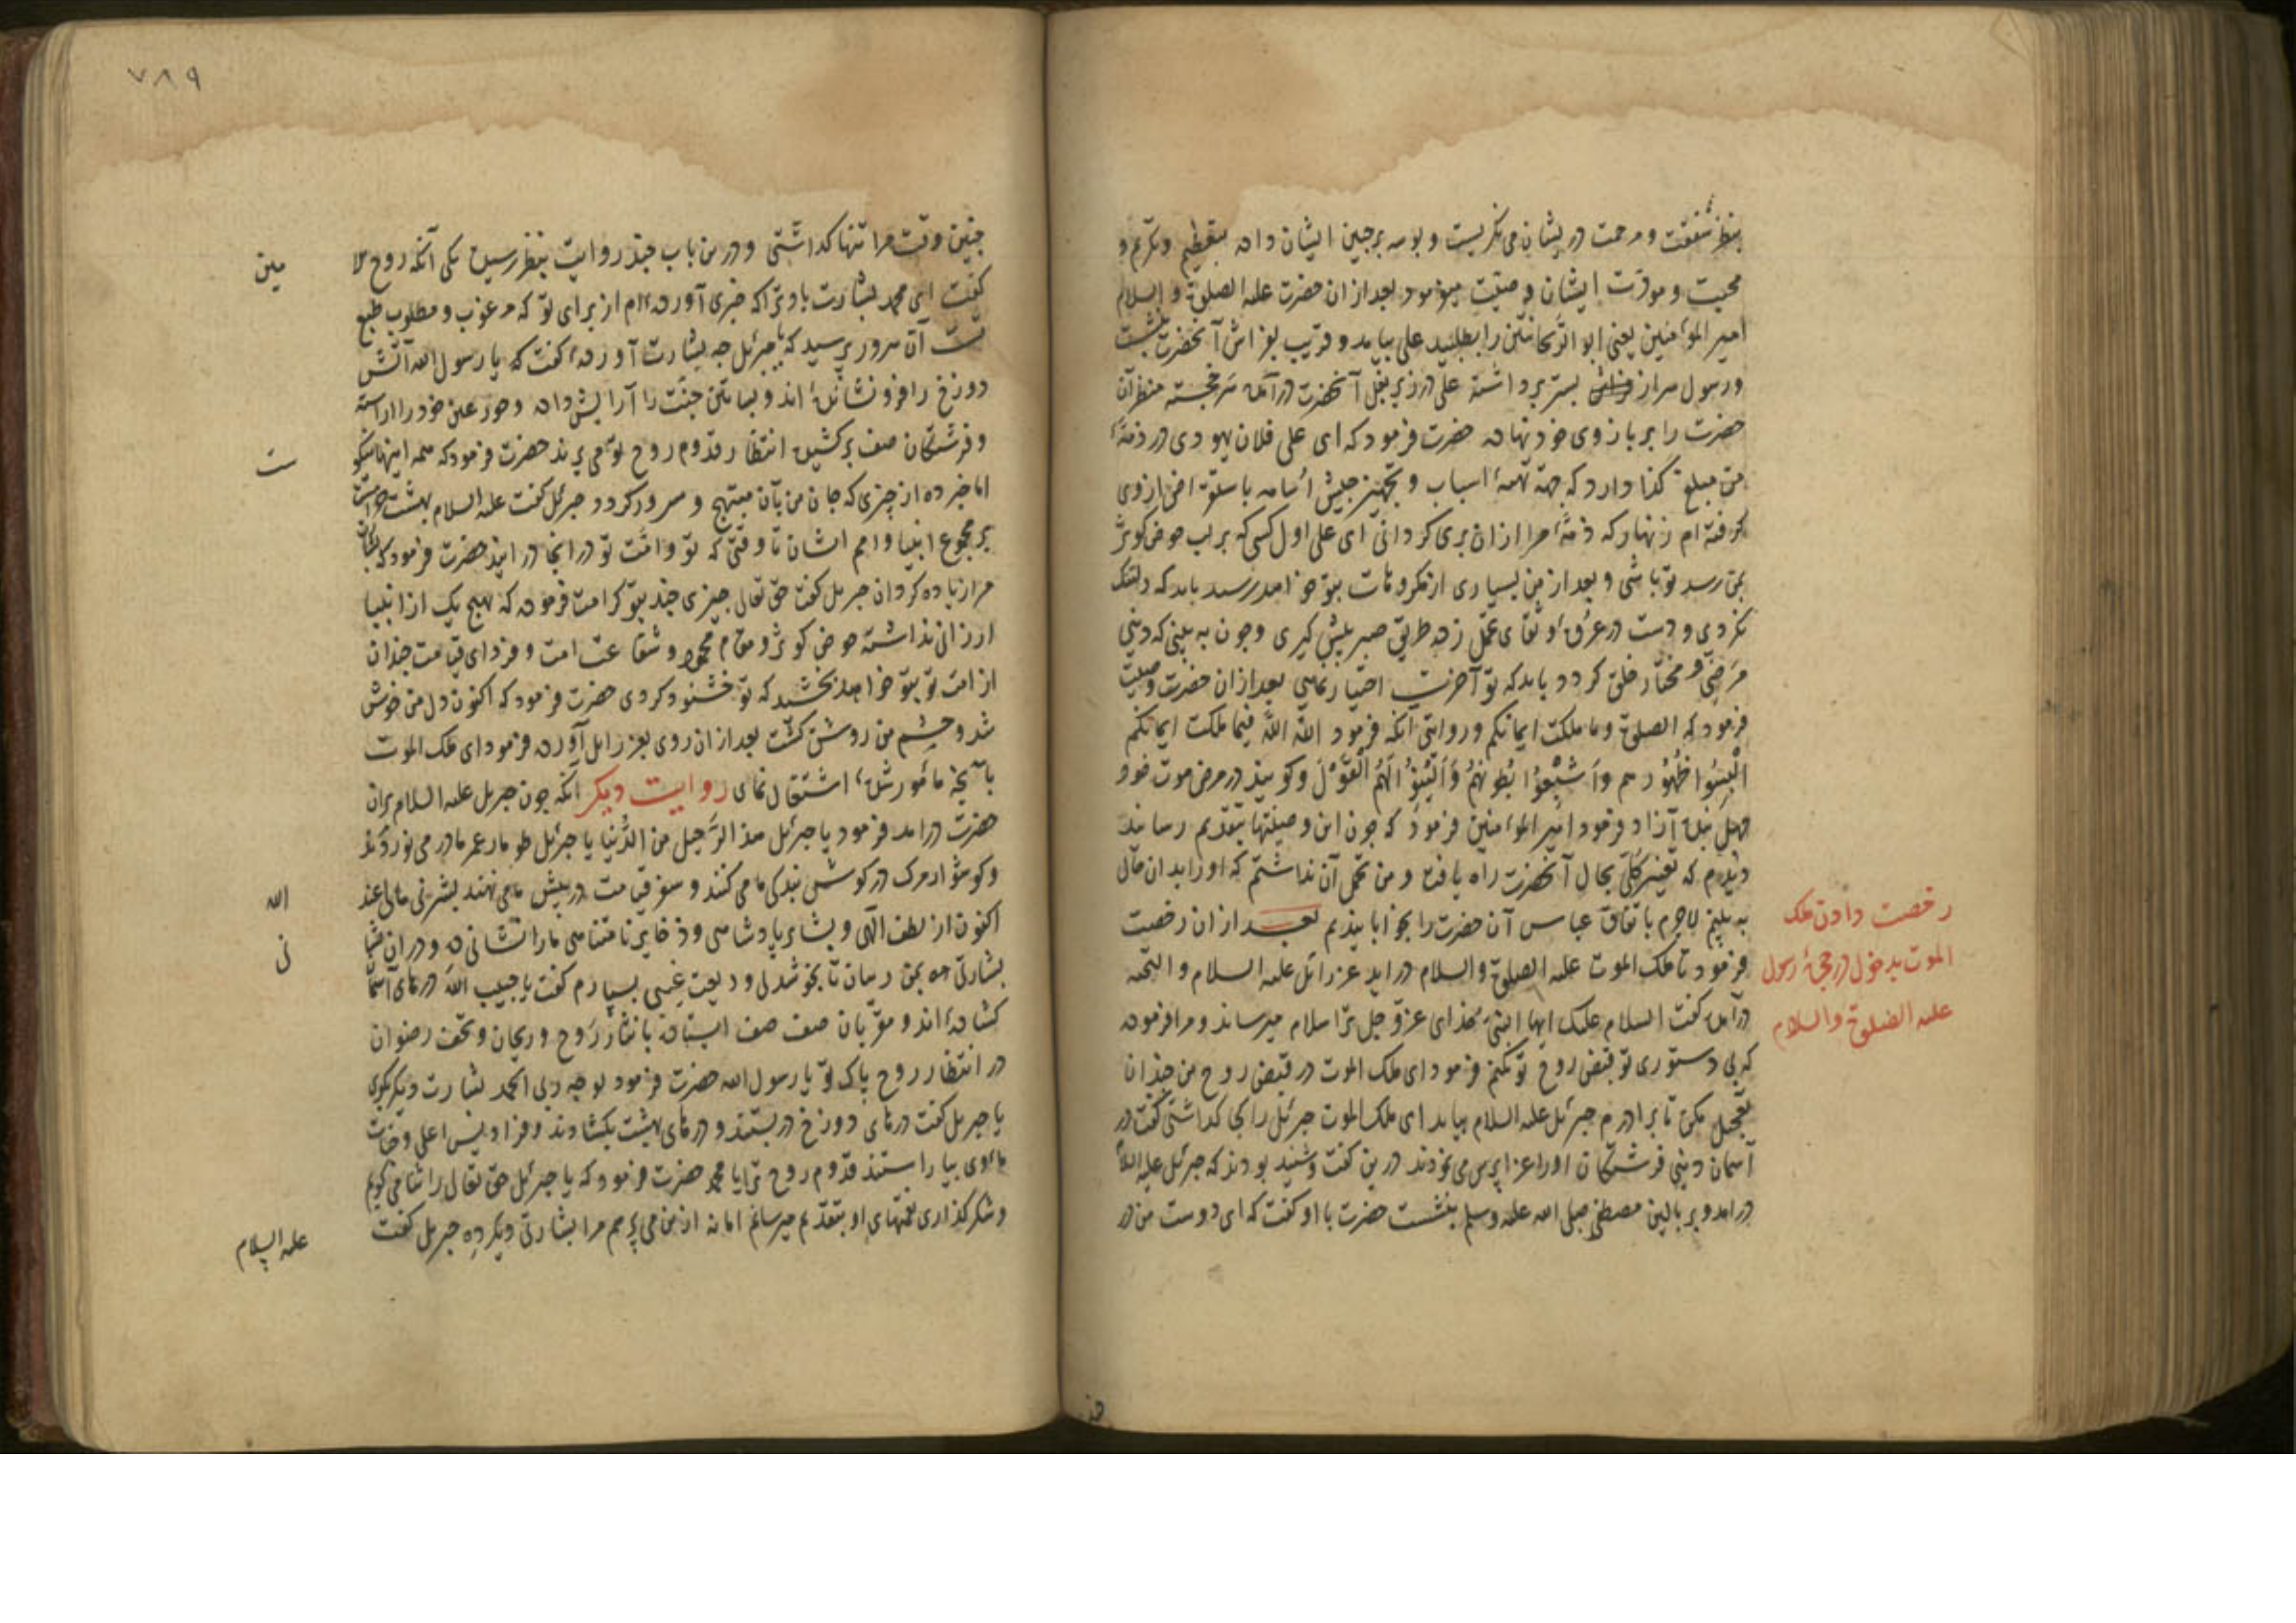 بنظر شفقت و مرحمت در یشان می نکریست و بوسه بر جبین ایشان داده بتعظیم و تکریم و
محبت و مودّت ایشان وصیّت میفرمود بعد ازان حضرت علیه الصلوة و السلام
امیر المؤمنین یعنی ابو الرّیحانتین را بطلبید علی بیامد و قریب بفراش آنحضرت بنشست
و رسول سر از بستر برداشته علی در زیر بغل آنحضرت در آمده سر خجسته منظر آن
حضرت را بر بازوی خود نهاده حضرت فرمود که ای علی فلان یهودی در ذمهٔ
من مبلغ کذا دارد که جهة تهیهٔ اسباب و تجهیز جیش اُسامه باسلوة از وی
کرفته ام زنهار که ذمّهٔ مرا ازان بری کردانی ای علی اول کسی که بر لب حوض کوثر
بمن رسد تو باشی و بعد از من بسیاری از مکروهات بتو خواهد رسید باید که دلتنک
نکردی و دست در عروهٔ وثقای تحمّل زده طریق صبر پیش کیری و چون به بینی که دنیی
مرضیّ و مختار خلق کردد باید که تو آخرت اختیار نمایی بعد ازان حضرت وصیّت
فرمود که الصلوة و ما ملکت ایمانکم و روایتی آنکه فرمود اللّه اللّه فیما ملکت ایمانکم
اَلْبِسُوا ظُهُورهم وَاَشْبِعُوا بُطُونَهُمْ وَاَلَیِّنُوا لَهُمُ الْقَوْلَ و کویند در مرض موت خود
چهل بنده آزاد فرمود امیر المؤمنین فرمود که چون این وصیّتها بتقدیم رسانید
دیدم که تغیّر کُلّی بحال آنحضرت راه یافت و من تحمّل آن نداشتم که او را بدان حال
به بینم لاجرم باتفاق عباس آن حضرت را بخوابانیدیم بعد ازان رخصت
فرمود تا ملک الموت علیه الصلوة والسلام در اید عزرائل علیه السلام و التحیه
در آمده کفت السلام علیک ایها النبیّ خدای عزّ و جل ترا سلام میرساند و مرا فرموده
که بی دستوری تو قبض روح تو نکنم فرمود ای ملک الموت در قبض روح من چندان
تعجیل مکن تا برادرم جبرئل علیه السلام بیاید ای ملک الموت جبرئل را کجا کذاشتی کفت در
آسمان دنیی فرشتکان او را عزا پرس می نمودند درین کفت و شنید بودند که جبرئل علیه السلام
در امد و بر بالین مصطفی صلی الله علیه وسلم بنشست حضرت با او کفت که ای دوست من در
رخصت دادن ملک
الموت بدخول در حجرهٔ رسول
علیه الصلوة والسلام
۷۸۹
چنین وقت مرا تنها کذاشتی و درین باب چند روایت بنظر رسیده یکی آنکه روح الا
مین
کفت ای محمد بشارت باد ترا که خبری آورده ام از برای تو که مرغوب و مطلوب طبع
تست آن سرور پرسید که یا جبرئل چه بشارت آوردهٔ کفت که یا رسول الله آتش
دوزخ را فرو نشانیده اند و بساتین جنّت را آرایش داده و حور عین خود را اراسته
و فرشتکان صف بر کشیده انتظار قدوم روح تو می برند حضرت فرمود که همه اینها نیکو
ست
اما خبر ده از چیزی که جان من بآن مبتهج و مسرور کردد جبرئل کفت علیه السلام بهشت حرامست
بر مجموع انبیا و امم ایشان تا وقتی که تو و امّت تو در انجا در ایند حضرت فرمود که بشارت
مرا زیاده کردان جبریل کفت حق تعالی چیزی چند بتو کرامت فرموده که هیچ یک از انبیا
ارزانی نداشته حوض کوثر و مقام محمود و شفاعت امت و فردای قیامت چندان
از امّت تو بتو خواهد بخشید که تو خشنود کردی حضرت فرمود که اکنون دل من خوش
شد و چشم من روشن کشت بعد ازان روی بعزرایل آورده فرمود ای ملک الموت
بآنچه مأمور شدهٔ اشتغال نمای روایت دیکر آنکه چون جبریل علیه السلام بران
حضرت در امد فرمود یا جبرئل هذا الرّحیل من الدُّنیا یا جبرئل طومار عمر ما در می نوردند
و کوشوار مرک در کوش بندکی ما می کنند و سفر قیامت در پیش ما می نهند بشّرنی مالی عند
الله
اکنون از لطف الهی و بشایر پادشاهی و ذخایر نامتناهی ما را نشانی ده و در ان
نی
بشارتی ده بمن رسان تا بخوشدلی ودیعت غیبی بسپارم کفت یا حبیب اللّه درهای آسمان
کشاده اند و مقرّبان صف صف ایستاده با نثار رَوح و ریحان و تحف رضوان
در انتظار روح پاک تو یا رسول الله حضرت فرمود لوجه ربی الحمد بشارت دیکر بکوی
یا جبریل کفت درهای دوزخ در بستند و درهای بهشت بکشادند و فرادیس اعلی و جنات
مأوی بیاراستند قدوم روح ترا یا محمد حضرت فرمود که یا جبرئل حق تعالی را ثنا می کویم
و شکر کذاری نعمتهای او بتقدیم میرسانم اما نه از من می پرسم مرا بشارتی دیکر ده جبریل کفت
علیه السلام